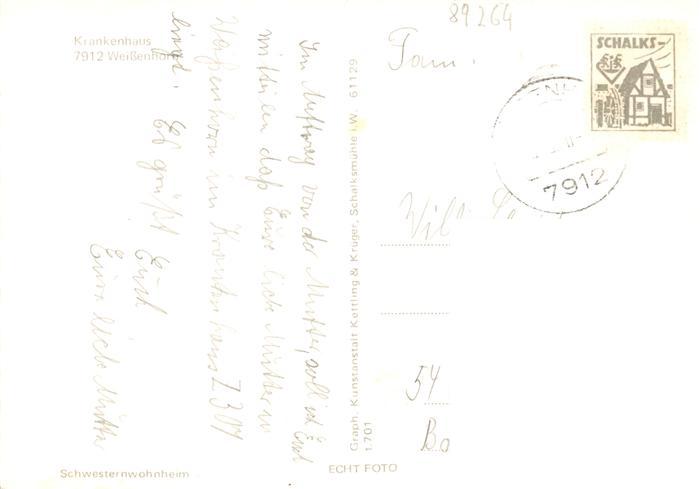 89264
Krankenhaus
7912 Weißenhorn
Schwesternwohnheim
Im Auftrag von der Mutter, soll ich Euch
mitteilen daß Eure liebe Mutter in
Waßenhorn im Krankenhaus Z 301
liegt. Es grüßt Euch
Eure liebe Mutter
Graph. Kunstanstalt Kettling & Krüger, Schalksmühle i.W. 61129
1.701
ECHT FOTO
Fam.
54
Bo
SCHALKS-
7912